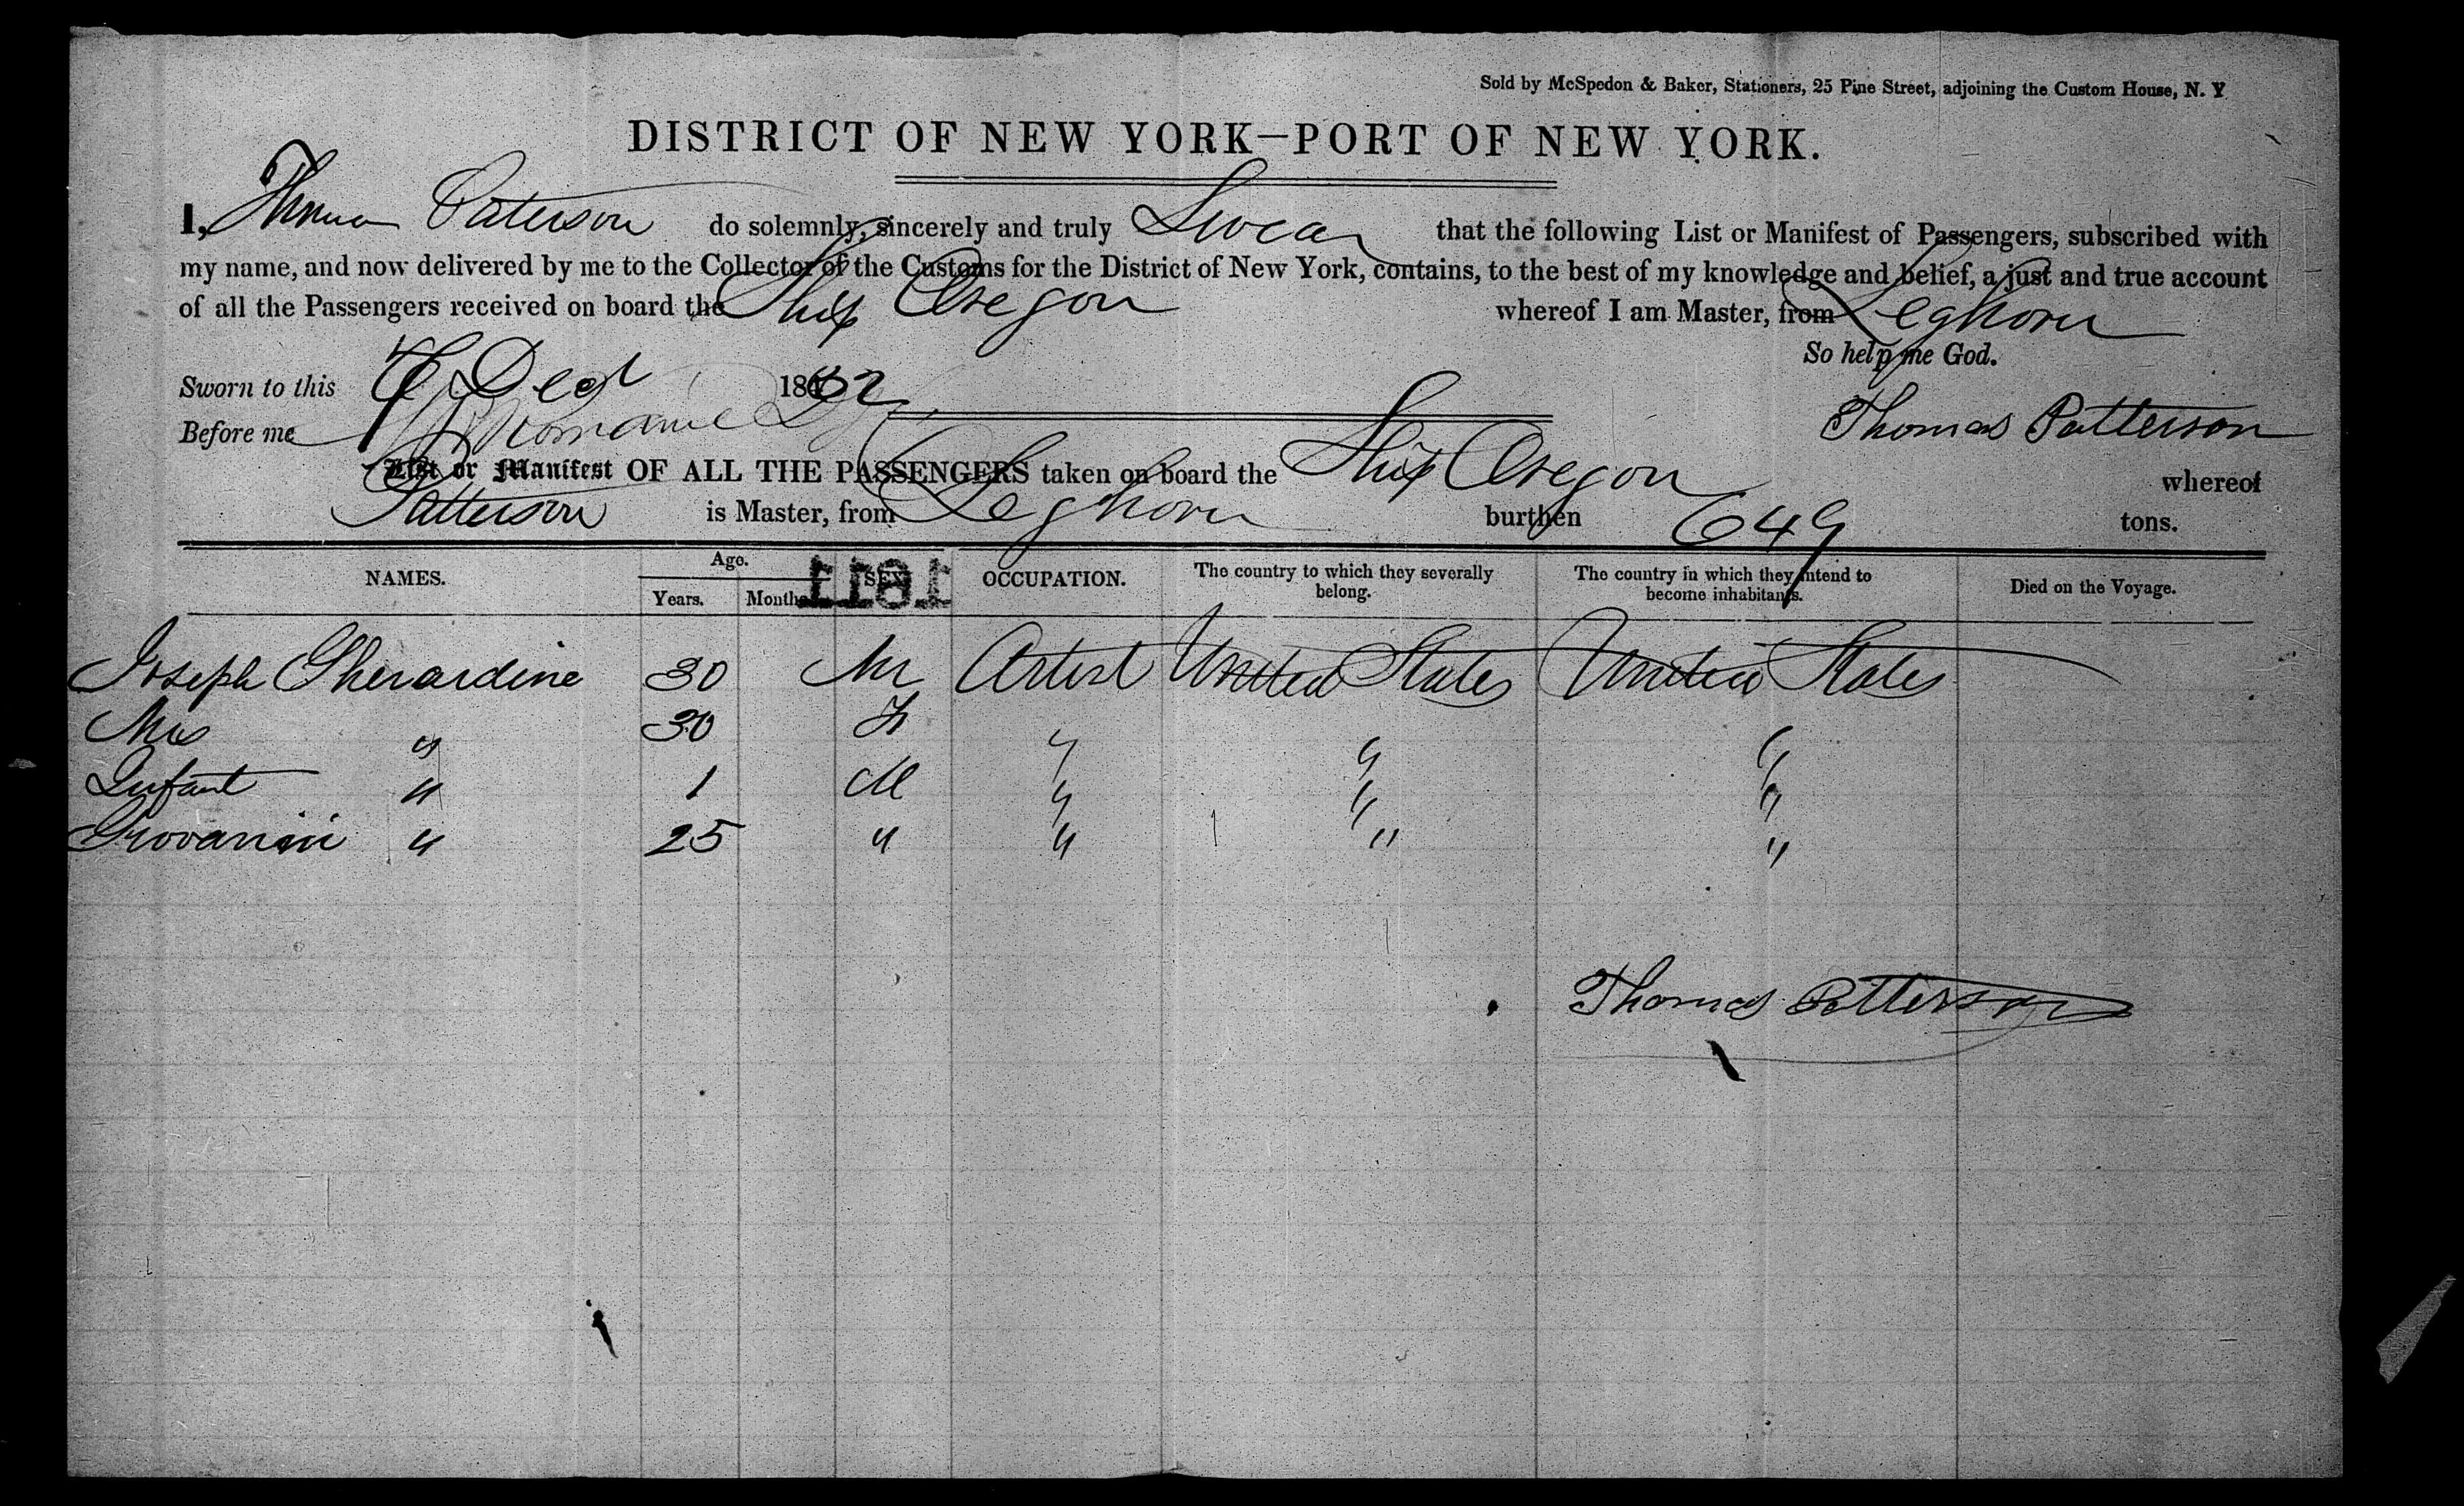 Sold by McSpedon & Baker, Stationers, 25 Pine Street, adjoining the Custom House, N. Y
DISTRICT OF NEW YORK—PORT OF NEW YORK.
I, Thomas Paterson do solemnly, sincerely and truly Swear that the following List or Manifest of Passengers, subscribed with
my name, and now delivered by me to the Collector of the Customs for the District of New York, contains, to the best of my knowledge and belief, a just and true account
of all the Passengers received on board the Ship Oregon whereof I am Master, from Leghorn
So help me God.
Sworn to this Dec 1852
Before me Thomas Patterson
List or Manifest OF ALL THE PASSENGERS taken on board the Ship Oregon whereof
Patterson is Master, from Leghorn burthen 649 tons.
NAMES. Age. Years. Months. SEX OCCUPATION. The country to which they severally belong. The country in which they intend to become inhabitants. Died on the Voyage.
1811
Joseph Gherardine 30 M Artist United States United States
Mrs " 30 F " " "
Infant " 1 M " " "
Giovanini " 25 " " " "
Thomas Patterson